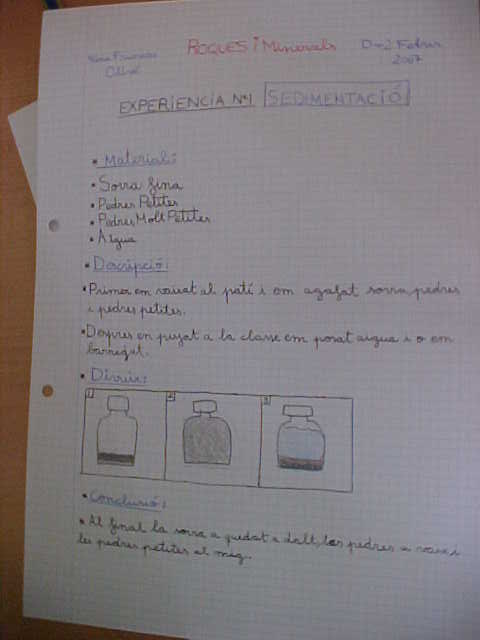 ROQUES i Minerals
D-2 Febrer
2007
EXPERIENCIA Nº1 SEDIMENTACIÓ
• Material:
• Sorra fina
• Pedres Petites
• Pedres Molt Petites
• Aigua
• Descripció:
• Primer em baixat al pati i em agafat sorra, pedres
i pedres petites.
• Despres en pujat a la classe em posat aigua i o em
barrejat.
• Dibuix:
1
2
3
• Conclusió:
• Al final la sorra a quedat a dalt, les pedres a baix i
les pedres petites al mig.